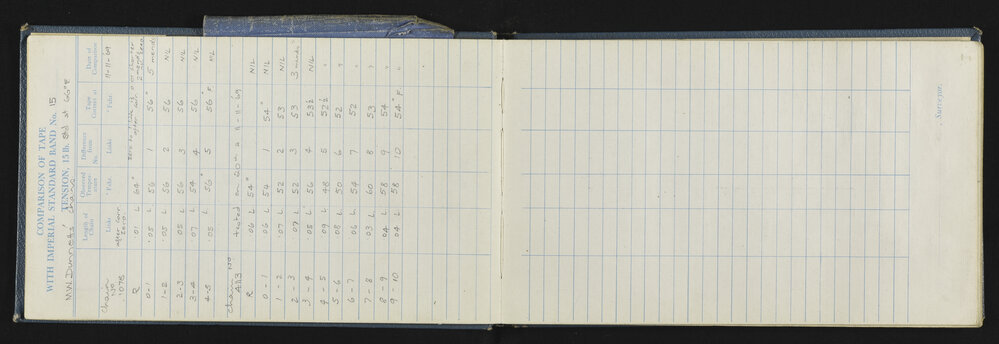 COMPARISON OF TAPE
WITH IMPERIAL STANDARD BAND No. 1B
TENSION, 15 lb. Std at 66°F
M.W. Dunnett's chains
Length of Chain | Observed Temperature | Difference from No. | Tape Correct at | Date of Comparison
Links | °Fahr. | Links | °Fahr. | 11-11-69
Chain No 1078
after corr
R | .01 L | 64° | after corr. | 2 mends
0-1 | .05 L | 56 | 1 | 56° | 5 mends
1-2 | .05 L | 56 | 2 | 56 | NIL
2-3 | .05 L | 56 | 3 | 56 | NL
3-4 | .07 L | 54 | 4 | 56 | NL
4-5 | .05 L | 56° | 5 | 56°F | NL
Chain No 433 tested on 11-11-69
R | .06 L | 54° | NIL
0-1 | .06 L | 54 | 1 | 54° | NIL
1-2 | .07 L | 52 | 2 | 53 | NIL
2-3 | .07 L | 52 | 3 | 53 | 3 mends
3-4 | .05 L | 56 | 4 | 53½ | NIL
4-5 | .09 L | 48 | 5 | 52½ | "
5-6 | .08 L | 50 | 6 | 52 | "
6-7 | .06 L | 54 | 7 | 52 | "
7-8 | .03 L | 60 | 8 | 53 | "
8-9 | .04 L | 58 | 9 | 54 | "
9-10 | .04 L | 58 | 10 | 54°F | "
Surveyor.